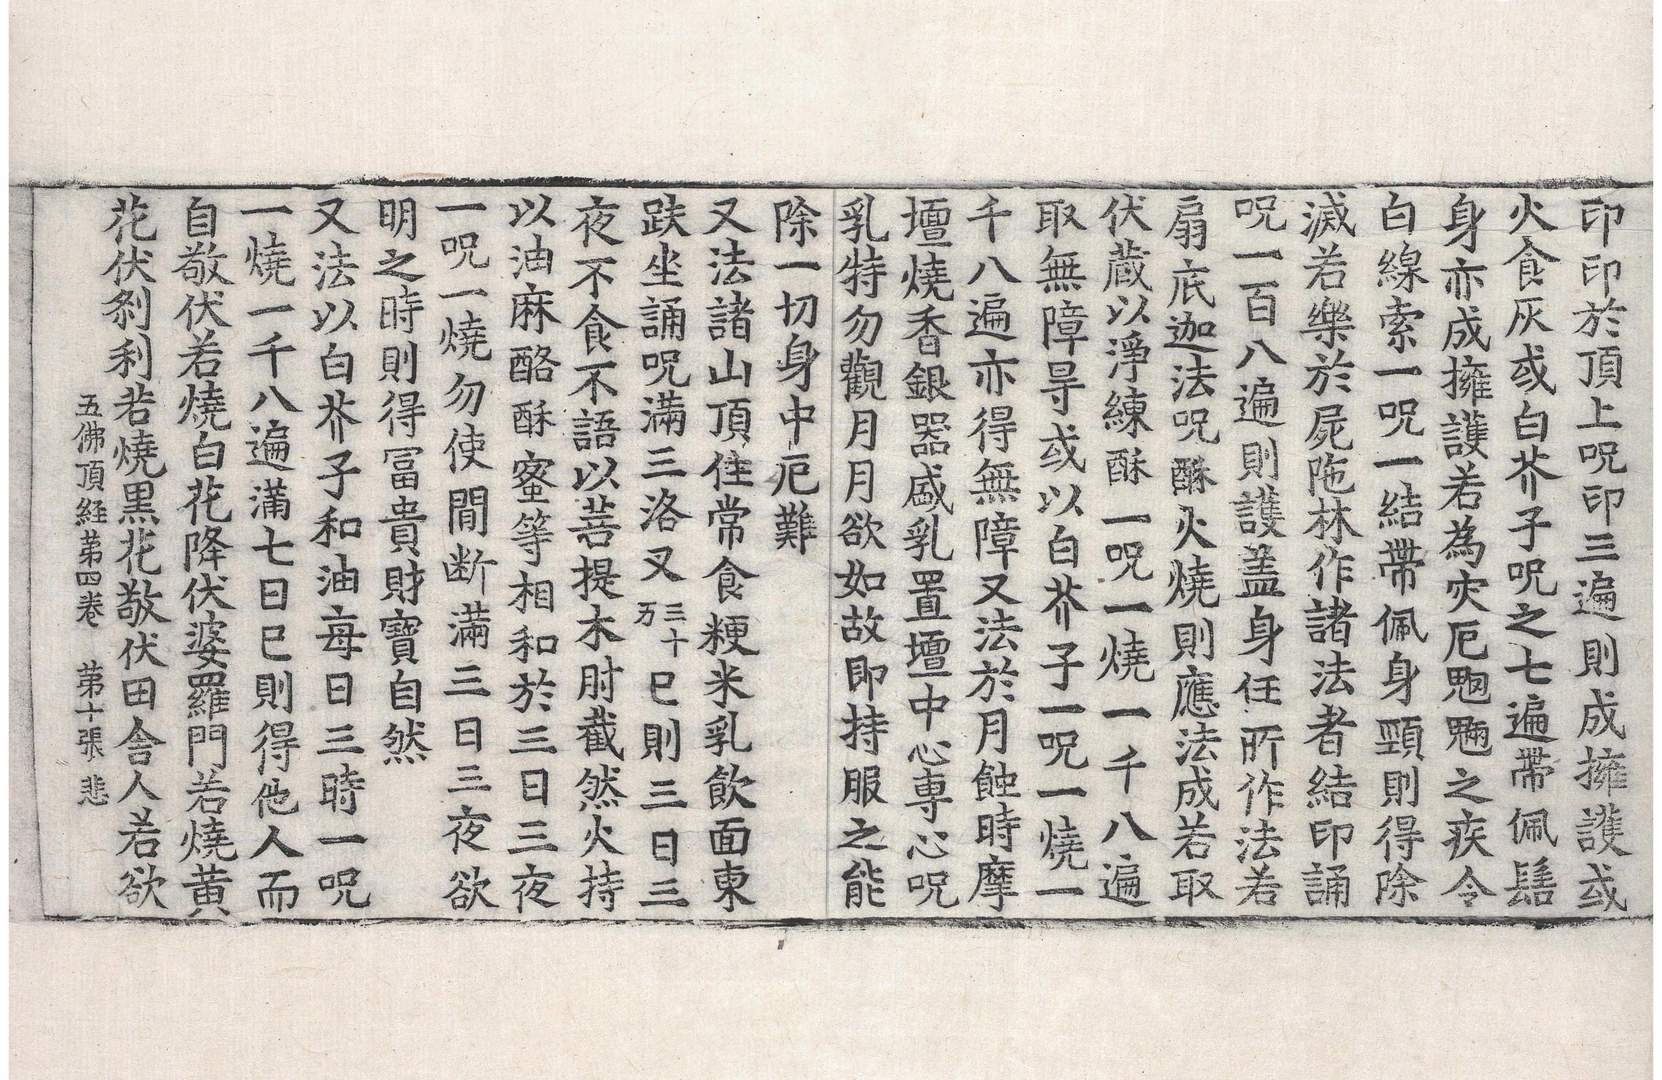 印印於頂上呪印三遍則成擁護或
火食灰或白芥子呪之七遍帶佩髻
身亦成擁護若為灾厄魍魎之疾令
白線索一呪一結帶佩身頸則得除
滅若樂於屍陁林作諸法者結印誦
呪一百八遍則護盖身任所作法若
扇底迦法呪酥火燒則應法成若取
伏蔵以淨練酥一呪一燒一千八遍
取無障㝵或以白芥子一呪一燒一
千八遍亦得無障又法於月蝕時摩
壇燒香銀器盛乳置壇中心専心呪
乳特勿觀月月欲如故即持服之能
除一切身中厄難
又法諸山頂住常食粳米乳飲面東
趺坐誦呪滿三洛叉三十万巳則三日三
夜不食不語以菩提木肘截然火持
以油麻酪酥蜜等相和於三日三夜
一呪一燒勿使間断滿三日三夜欲
明之時則得冨貴財寶自然
又法以白芥子和油毎日三時一呪
一燒一千八遍滿七日巳則得他人而
自敬伏若燒白花降伏婆羅門若燒黄
花伏刹利若燒黒花敬伏田舎人若欲
五佛頂經第四卷　第十張　悲